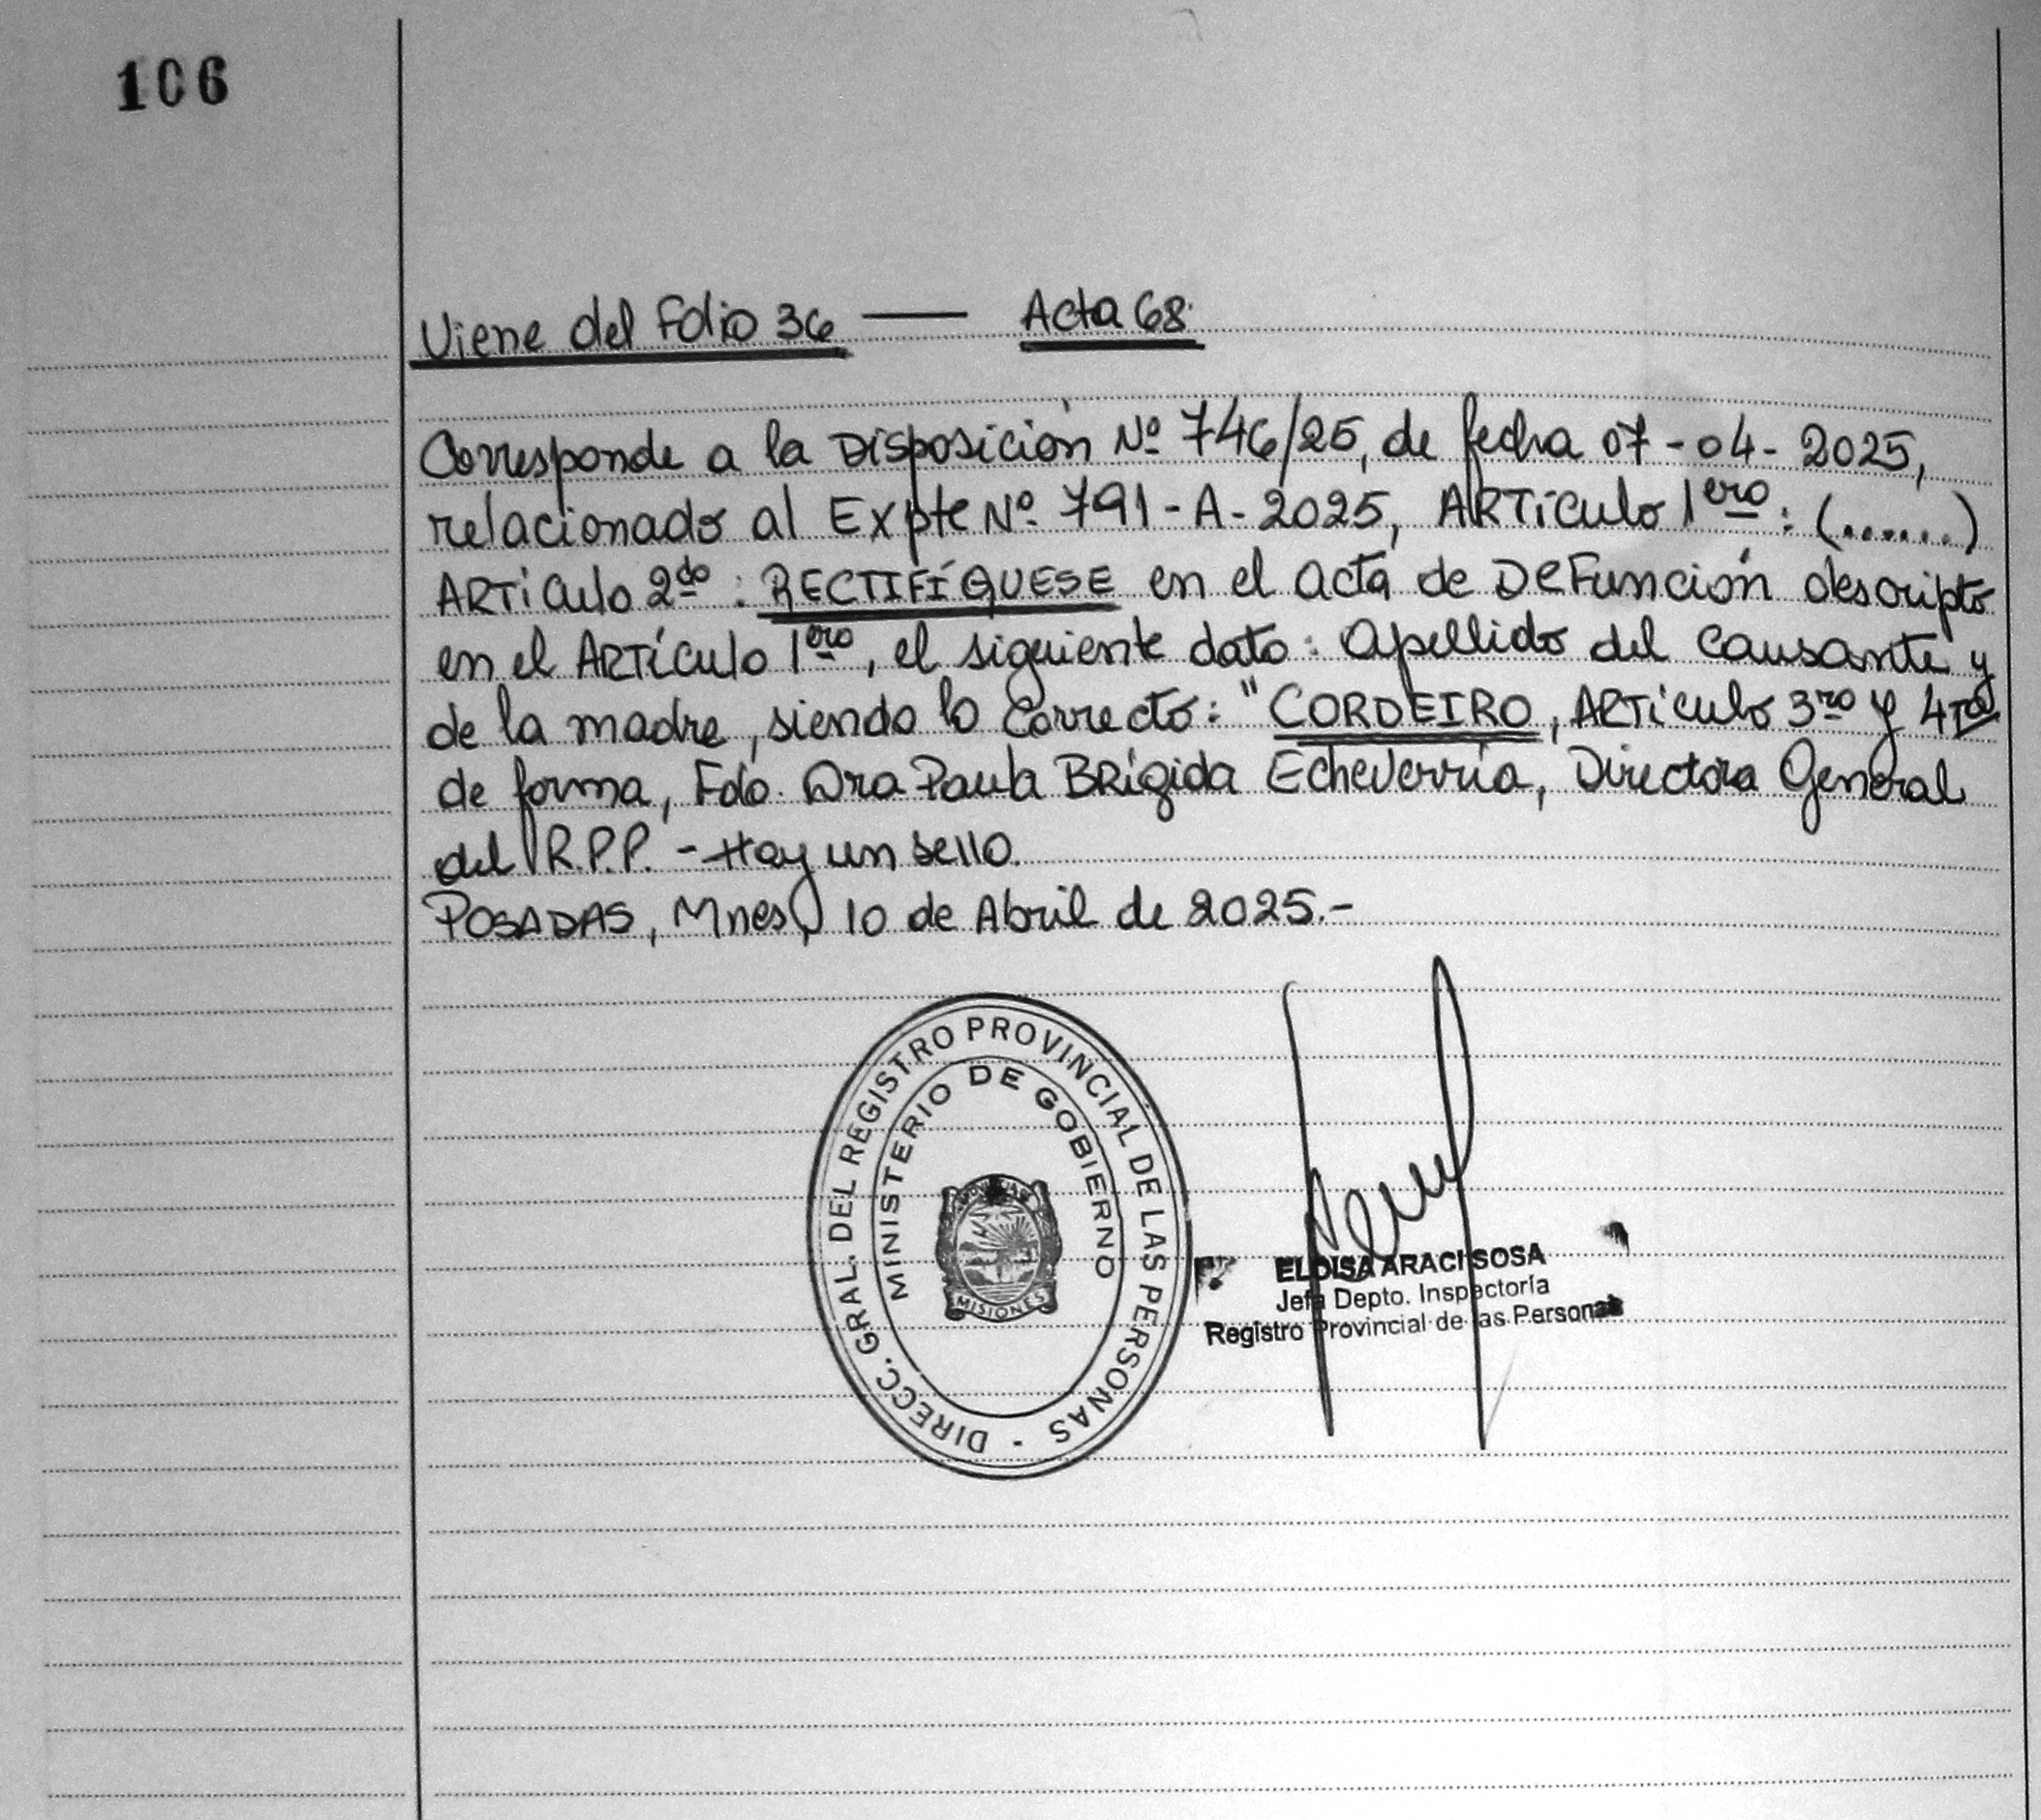 106
Viene del Folio 36 — Acta 68.
Corresponde a la Disposición Nº 746/25, de fecha 07-04-2025,
relacionado al Expte Nº 791-A-2025, ARTículo 1ero: (......)
ARTículo 2do: RECTIFÍQUESE en el acta de DeFunción descripto
en el ARTículo 1ero, el siguiente dato: Apellido del causante y
de la madre, siendo lo correcto: "CORDEIRO, ARTículo 3ro y 4to
de forma, Fdo. Dra Paula BRígida Echeverría, Directora General
del R.P.P. - Hay un sello.
POSADAS, Mnes, 10 de Abril de 2025.-
DIRECC. GRAL. DEL REGISTRO PROVINCIAL DE LAS PERSONAS -
MINISTERIO DE GOBIERNO
MISIONES
ELOISA ARACI SOSA
Jefa Depto. Inspectoría
Registro Provincial de las Personas